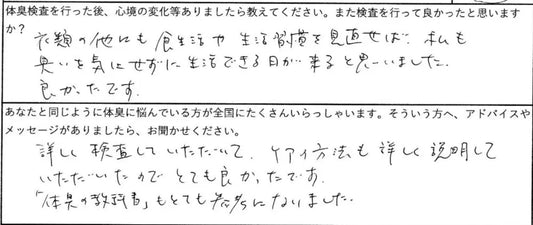 体臭検査を行った後、心境の変化等ありましたら教えてください。また検査を行って良かったと思います
か?
衣類の他にも食生活や生活習慣を見直せば、私も
臭いを気にせずに生活できる日が来ると思いました。
良かったです。
あなたと同じように体臭に悩んでいる方が全国にたくさんいらっしゃいます。そういう方へ、アドバイスや
メッセージがありましたら、お聞かせください。
詳しく検査していただいて、ケアィ方法も詳しく説明して
いただいたのでとても良かったです。
「体臭の教科書」もとても参考になりました。